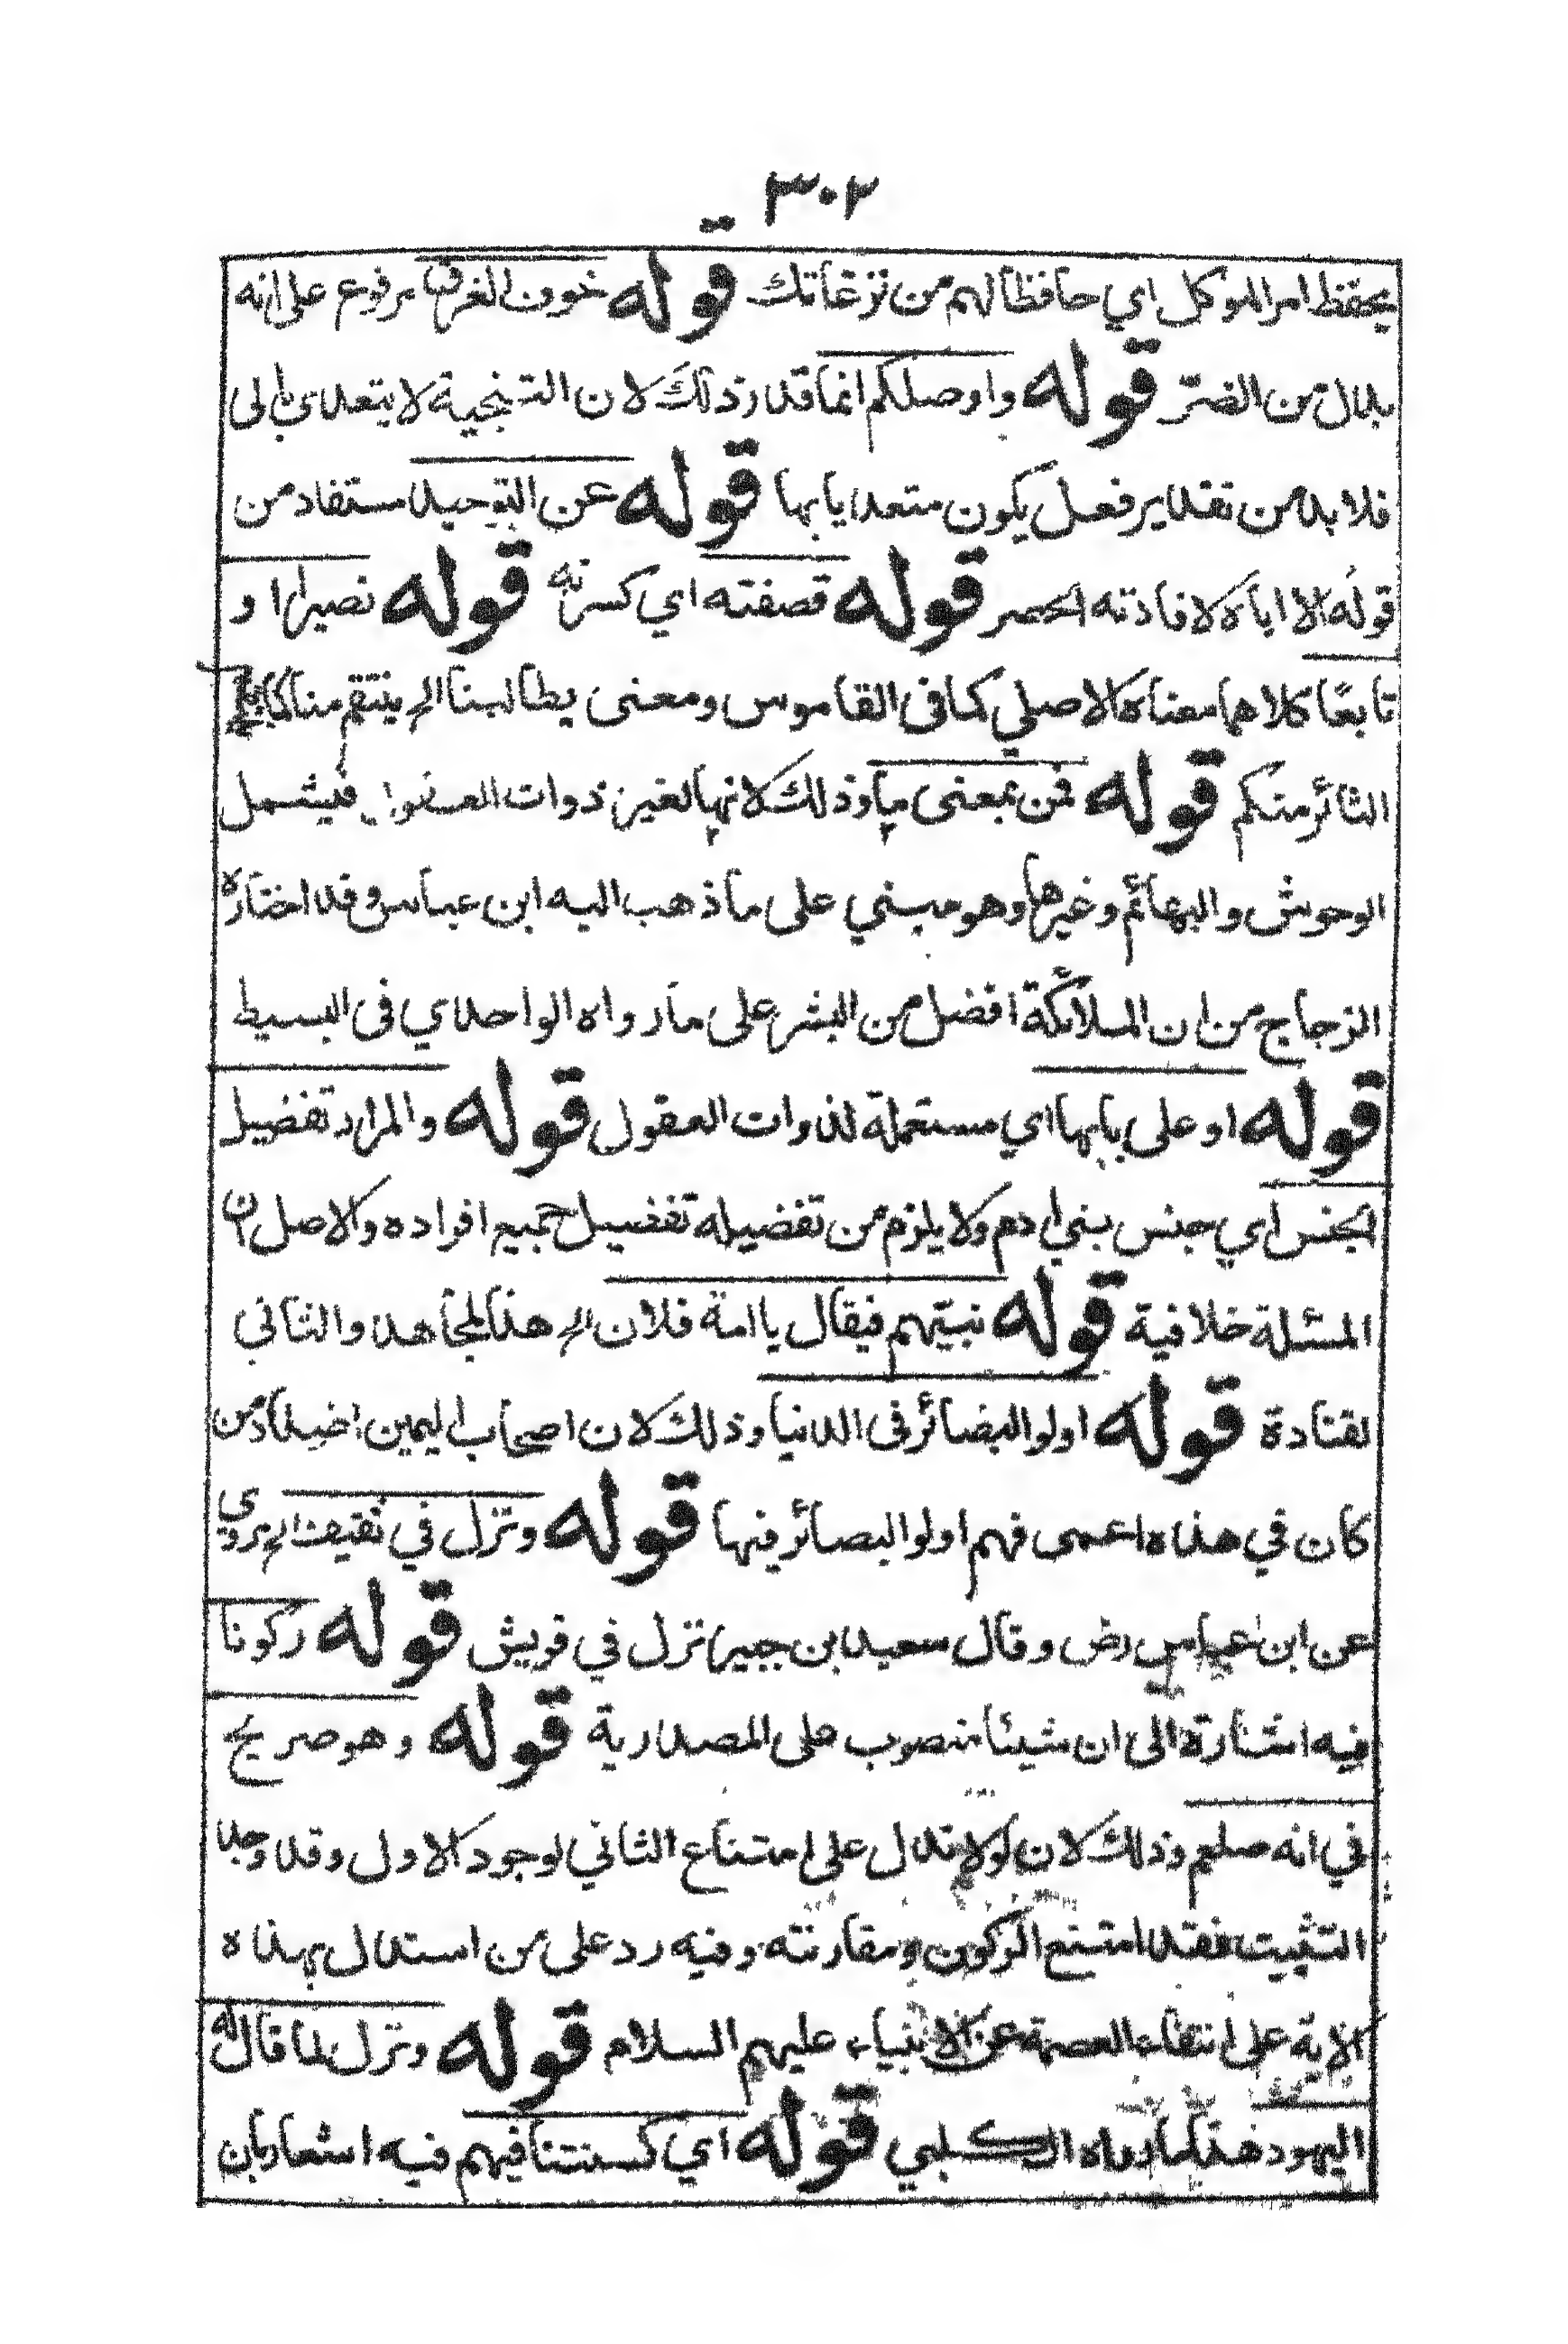 ٣٠٢
يحفظ امر الموكل اي حافظا لهم من نزغاتك قوله خوف الغرق مرفوع على انه
بدل من الضر قوله واوصلكم انما قدر ذلك لان التنجية لا يتعدى بالى
فلا بد من تقدير فعل يكون متعديا بها قوله عن التوحيد مستفاد من
قوله الا اياه لافادته الحصر قوله قصفته اي كسرته قوله نصيرا او
تابعًا كلاهما معناه الاصلي كما فى القاموس ومعنى يطالبنا الي ينتقم منا كما
الثائر منكم قوله فمن بمعنى ما وذلك لانها لغير ذوات العقول فيشمل
الوحوش والبهائم وغيرها وهو مبني على ما ذهب اليه ابن عباس وقد اختاره
الزجاج من ان الملائكة افضل من البشر على ما رواه الواحدي فى البسيط
قوله او على بابها اي مستعملة لذوات العقول قوله والمراد تفضيل
الجنس اي جنس بني ادم ولا يلزم من تفضيله تفضيل جميع افراده والاصل ان
المسئلة خلافية قوله نبيّهم فيقال يا امة فلان الي هذا لمجاهد والثاني
لقتادة قوله اولوا البصائر فى الدنيا وذلك لان اصحاب اليمين اخذ من
كان في هذه اعمى فهم اولوا البصائر فيها قوله ونزل في ثقيف الي يروى
عن ابن عباس رض وقال سعيد ابن جبير نزل في قريش قوله ركونا
فيه اشارة الى ان شيئا منصوب على المصدرية قوله وهو صريح
في انه صلعم وذلك لان لولا تدل على امتناع الثاني لوجود الاول وقد وجد
التثبيت فقد امتنع الركون ومقارنته وفيه رد على من استدل بهذه
الاية على انتفاء العصمة عن الانبياء عليهم السلام قوله ونزل لما قال له
اليهود هذا كما رواه الكلبي قوله اي كسنتنا فيهم فيه اشعار بان